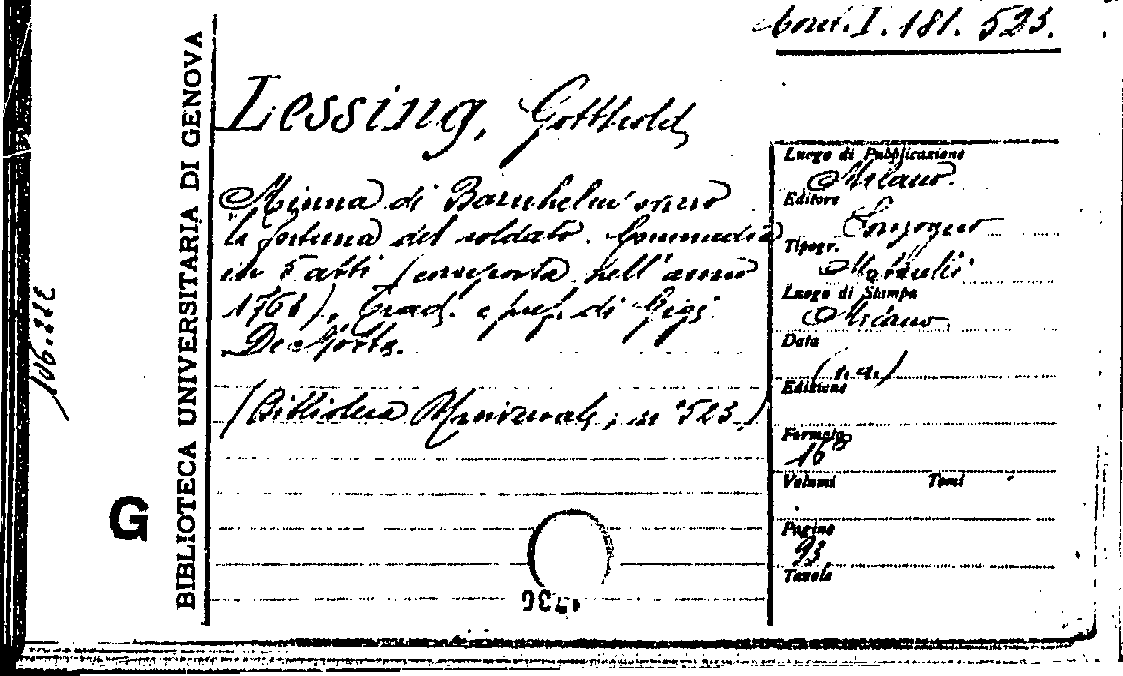 I. 181. 523.
BIBLIOTECA UNIVERSITARIA DI GENOVA
106.222
G
Lessing, Gotthold
Minna di Barnhelm ovvero
la fortuna del soldato. Commedia
in 5 atti (composta nell'anno
1763), Trad. e pref. di Gigi
De Motta.
(Biblioteca Universale, n° 523)
Luogo di Pubblicazione
Milano.
Editore
Sonzogno
Tipogr.
Luogo di Stampa
Milano
Data
(s.a.)
Edizione
Formato
16°
Volumi Tomi
Pagine
93
Tavole